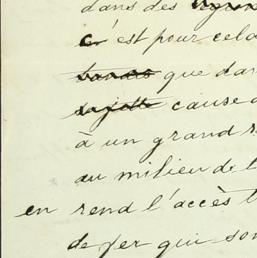 dans des
c'est pour cela
que dan
cause d
à un grand
au milieu de l
en rend l'accès t
de fer qui son